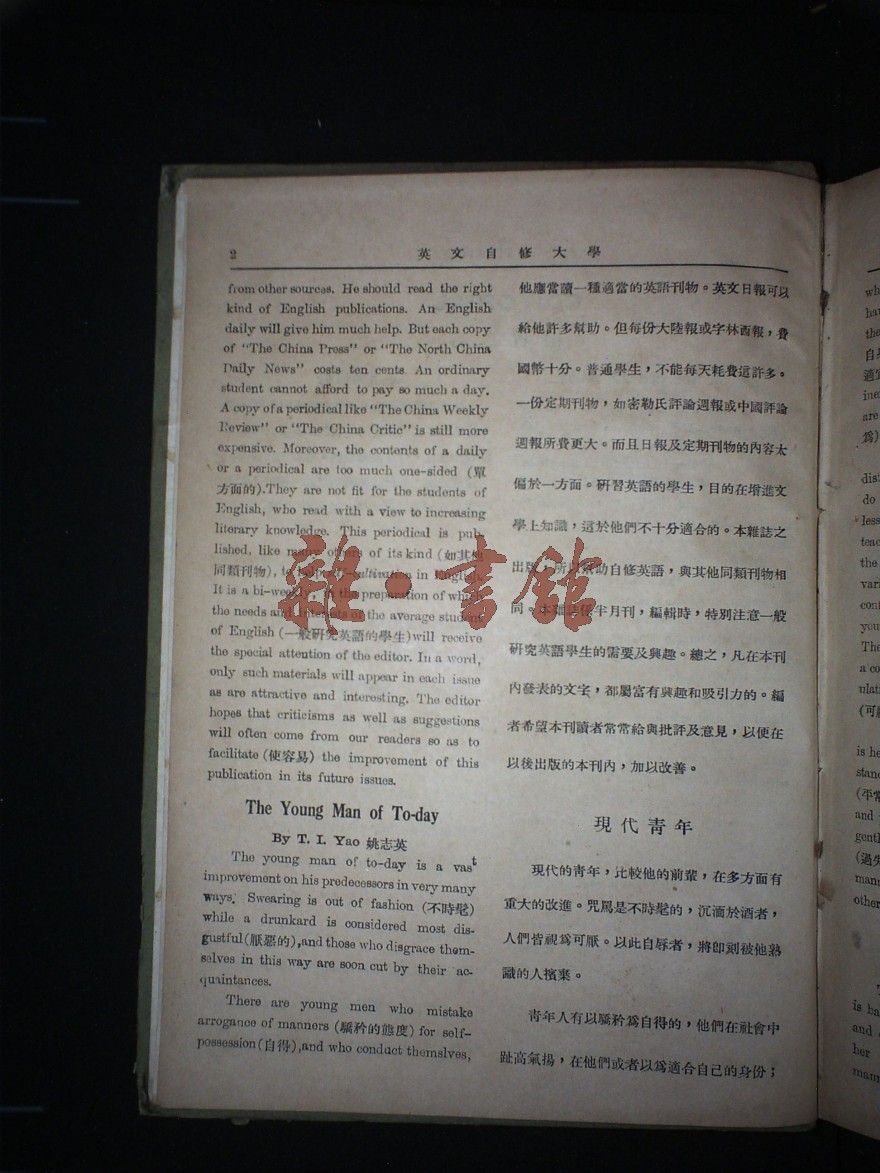 2
英文自修大學
from other sources. He should read the right
kind of English publications. An English
daily will give him much help. But each copy
of "The China Press" or "The North China
Daily News" costs ten cents. An ordinary
student cannot afford to pay so much a day.
A copy of a periodical like "The China Weekly
Review" or "The China Critic" is still more
expensive. Moreover, the contents of a daily
or a periodical are too much one-sided (單
方面的).They are not fit for the students of
English, who read with a view to increasing
literary knowledge. This periodical is pub-
lished, like many others of its kind (如其他
同類刊物), to help self-cultivation in English.
It is a bi-weekly, in the preparation of which
the needs and interests of the average student
of English (一般研究英語的學生) will receive
the special attention of the editor. In a word,
only such materials will appear in each issue
as are attractive and interesting. The editor
hopes that criticisms as well as suggestions
will often come from our readers so as to
facilitate (使容易) the improvement of this
publication in its future issues.
The Young Man of To-day
By T. I. Yao 姚志英
The young man of to-day is a vast
improvement on his predecessors in very many
ways. Swearing is out of fashion (不時髦)
while a drunkard is considered most dis-
gustful (厭惡的),and those who disgrace them-
selves in this way are soon cut by their ac-
quaintances.
There are young men who mistake
arrogance of manners (驕矜的態度) for self-
possession (自得),and who conduct themslves,
他應當讀一種適當的英語刊物。英文日報可以
給他許多幫助。但每份大陸報或字林西報，費
國幣十分。普通學生，不能每天耗費這許多。
一份定期刊物，如密勒氏評論週報或中國評論
週報所費更大。而且日報及定期刊物的內容太
偏於一方面。研習英語的學生，目的在增進文
學上知識，這於他們不十分適合的。本雜誌之
出版，所以幫助自修英語，與其他同類刊物相
同。本雜誌係半月刊，編輯時，特別注意一般
研究英語學生的需要及興趣。總之，凡在本刊
內發表的文字，都屬富有興趣和吸引力的。編
者希望本刊讀者常常給與批評及意見，以便在
以後出版的本刊內，加以改善。
現代靑年
現代的靑年，比較他的前輩，在多方面有
重大的改進。咒罵是不時髦的，沉湎於酒者，
人們皆視爲可厭。以此自辱者，將卽刻被他熟
識的人擯棄。
靑年人有以驕矜爲自得的，他們在社會中
趾高氣揚，在他們或者以爲適合自己的身份；
雜·書館